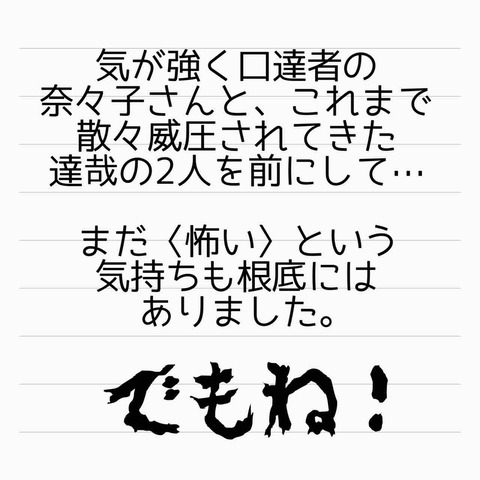 気が強く口達者の
奈々子さんと、これまで
散々威圧されてきた
達哉の2人を前にして…
まだ〈怖い〉という
気持ちも根底には
ありました。
でもね!